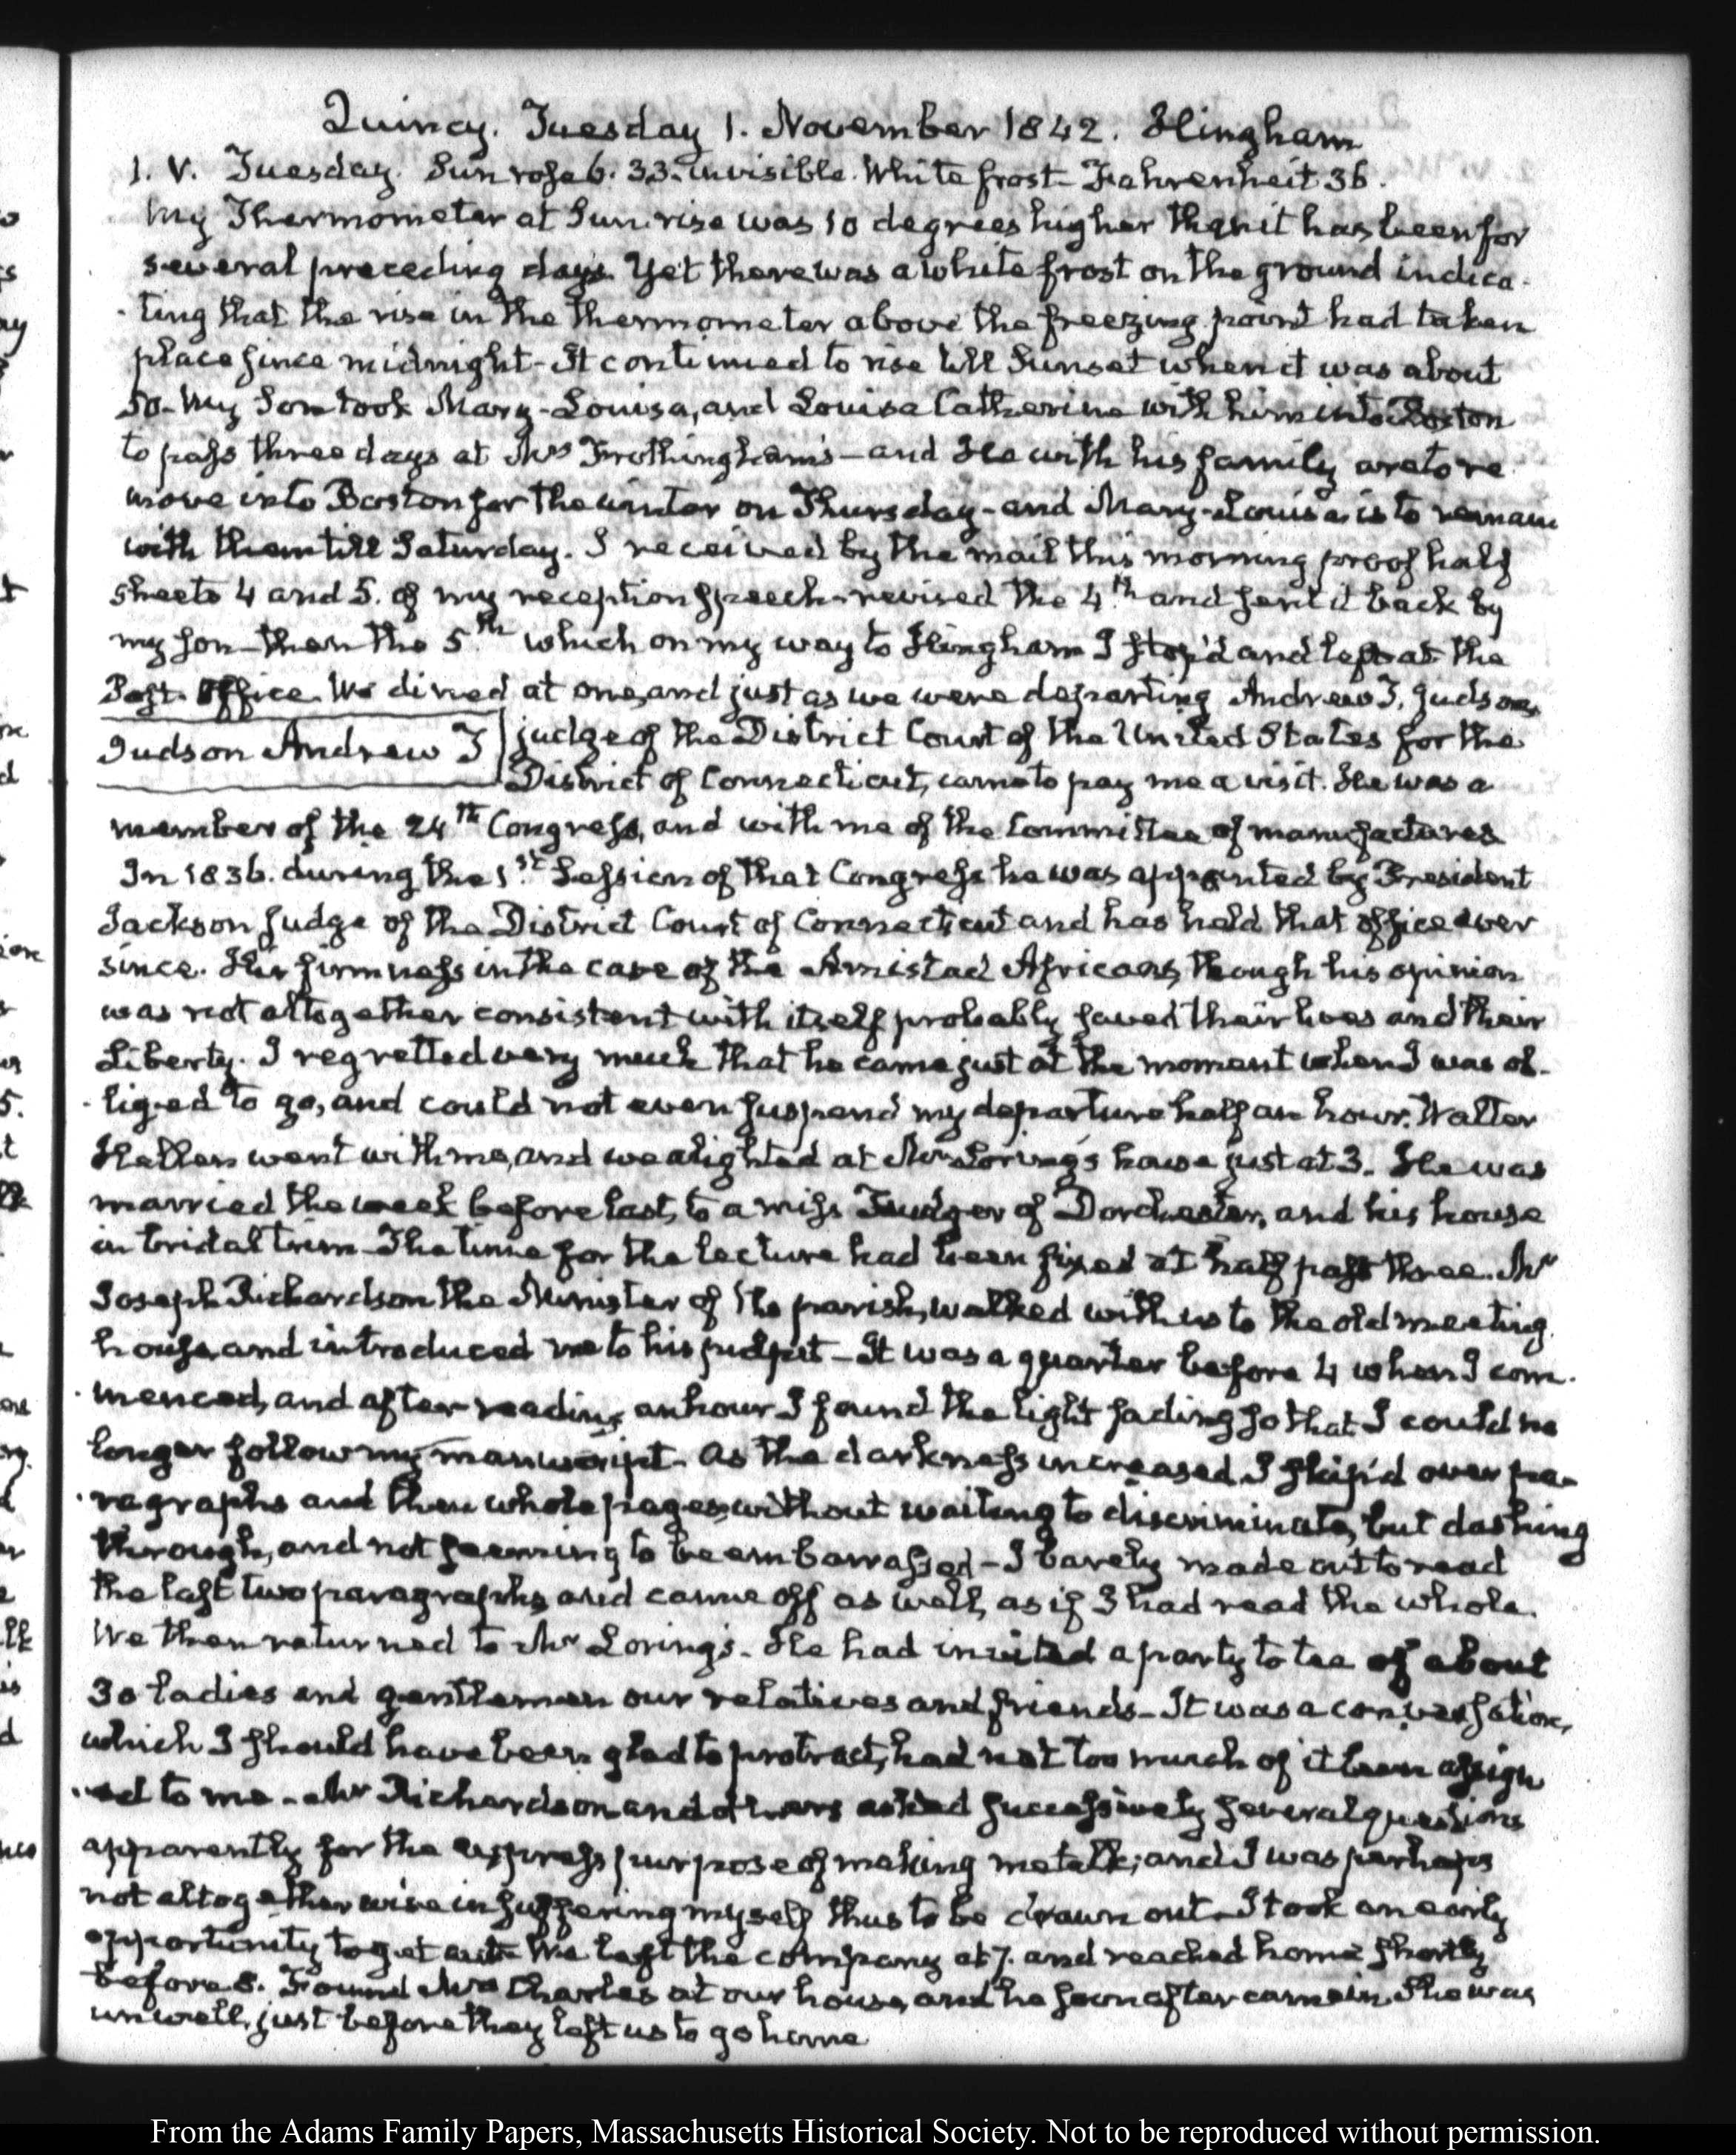 Quincy. Tuesday 1. November 1842. Hingham
1. V. Tuesday. Sun rose 6. 33. invisible. White frost- Fahrenheit 36.
My Thermometer at Sun-rise was 10 degrees higher than it has been for
several preceding days. Yet there was a white frost on the ground indica-
-ting that the rise in the thermometer above the freezing point had taken
place since midnight- It continued to rise till Sunset when it was about
50- My Son took Mary-Louisa, and Louisa Catherine with him into Boston
to pass three days at Mrs Frothingham's - and He with his family are to re
move into Boston for the winter on Thursday - and Mary-Louisa is to remain
with them till Saturday. I received by the mail this morning proof half
sheets 4 and 5. of my reception speech- revised the 4th. and sent it back by
my son- then the 5th. which on my way to Hingham I stop'd and left at the
Post-Office. We dined at one, and just as we were departing Andrew T. Judson,
Judson Andrew T
judge of the District Court of the United States for the
District of Connecticut, came to pay me a visit. He was a
member of the 24th Congress, and with me of the Committee of manufactures
In 1836. during the 1st. Session of that Congress he was appointed by President
Jackson judge of the District Court of Connecticut and has held that office ever
since. His firmness in the case of the Amistad Africans, though his opinion
was not altogether consistent with itself probably saved their lives and their
Liberty. I regretted very much that he came just at the moment when I was ob-
-liged to go, and could not even suspend my departure half an hour. Walter
Hellen went with me, and we alighted at Mr Loring's house just at 3. He was
married the week before last, to a miss of Dorchester, and his house
in bridal trim- The time for the lecture had been fixed at half past three. Mr
Joseph Richardson the Minister of the parish, walked with us to the old meeting
house, and introduced me to his pulpit - It was a quarter before 4 when I com-
-menced, and after reading an hour I found the light fading so that I could no
longer follow my manuscript. As the darkness increased I skip'd over pa-
-ragraphs and then whole pages, without waiting to discriminate, but dashing
through, and not seeming to be embarrassed - I barely made out to read
the last two paragraphs, and came off as well, as if I had read the whole.
We then returned to Mr Loring's. He had invited a party to tea of about
30 ladies and gentlemen our relatives and friends- It was a conversation,
which I should have been glad to protract, had not too much of it been assign
-ed to me - Mr Richardson and others asked successively several questions
apparently for the express purpose of making me talk; and I was perhaps
not altogether wise in suffering myself thus to be drawn out- I took an early
opportunity to get out- We left the company at 7. and reached home shortly
before 8. Found Mrs Charles at our house, and he soon after came in. She was
unwell, just before they left us to go home
From the Adams Family Papers, Massachusetts Historical Society. Not to be reproduced without permission.